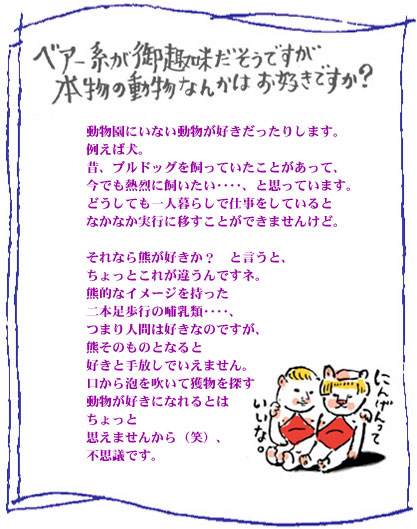 ベアー系が御趣味だそうですが
本物の動物なんかはお好きですか?
動物園にいない動物が好きだったりします。
例えば犬。
昔、ブルドッグを飼っていたことがあって、
今でも熱烈に飼いたい‥‥、と思っています。
どうしても一人暮らしで仕事をしていると
なかなか実行に移すことができませんけど。
それなら熊が好きか？　と言うと、
ちょっとこれが違うんですネ。
熊的なイメージを持った
二本足歩行の哺乳類‥‥、
つまり人間は好きなのですが、
熊そのものとなると
好きと手放しでいえません。
口から泡を吹いて獲物を探す
動物が好きになれるとは
ちょっと
思えませんから（笑）、
不思議です。
にんげんって
いいな。